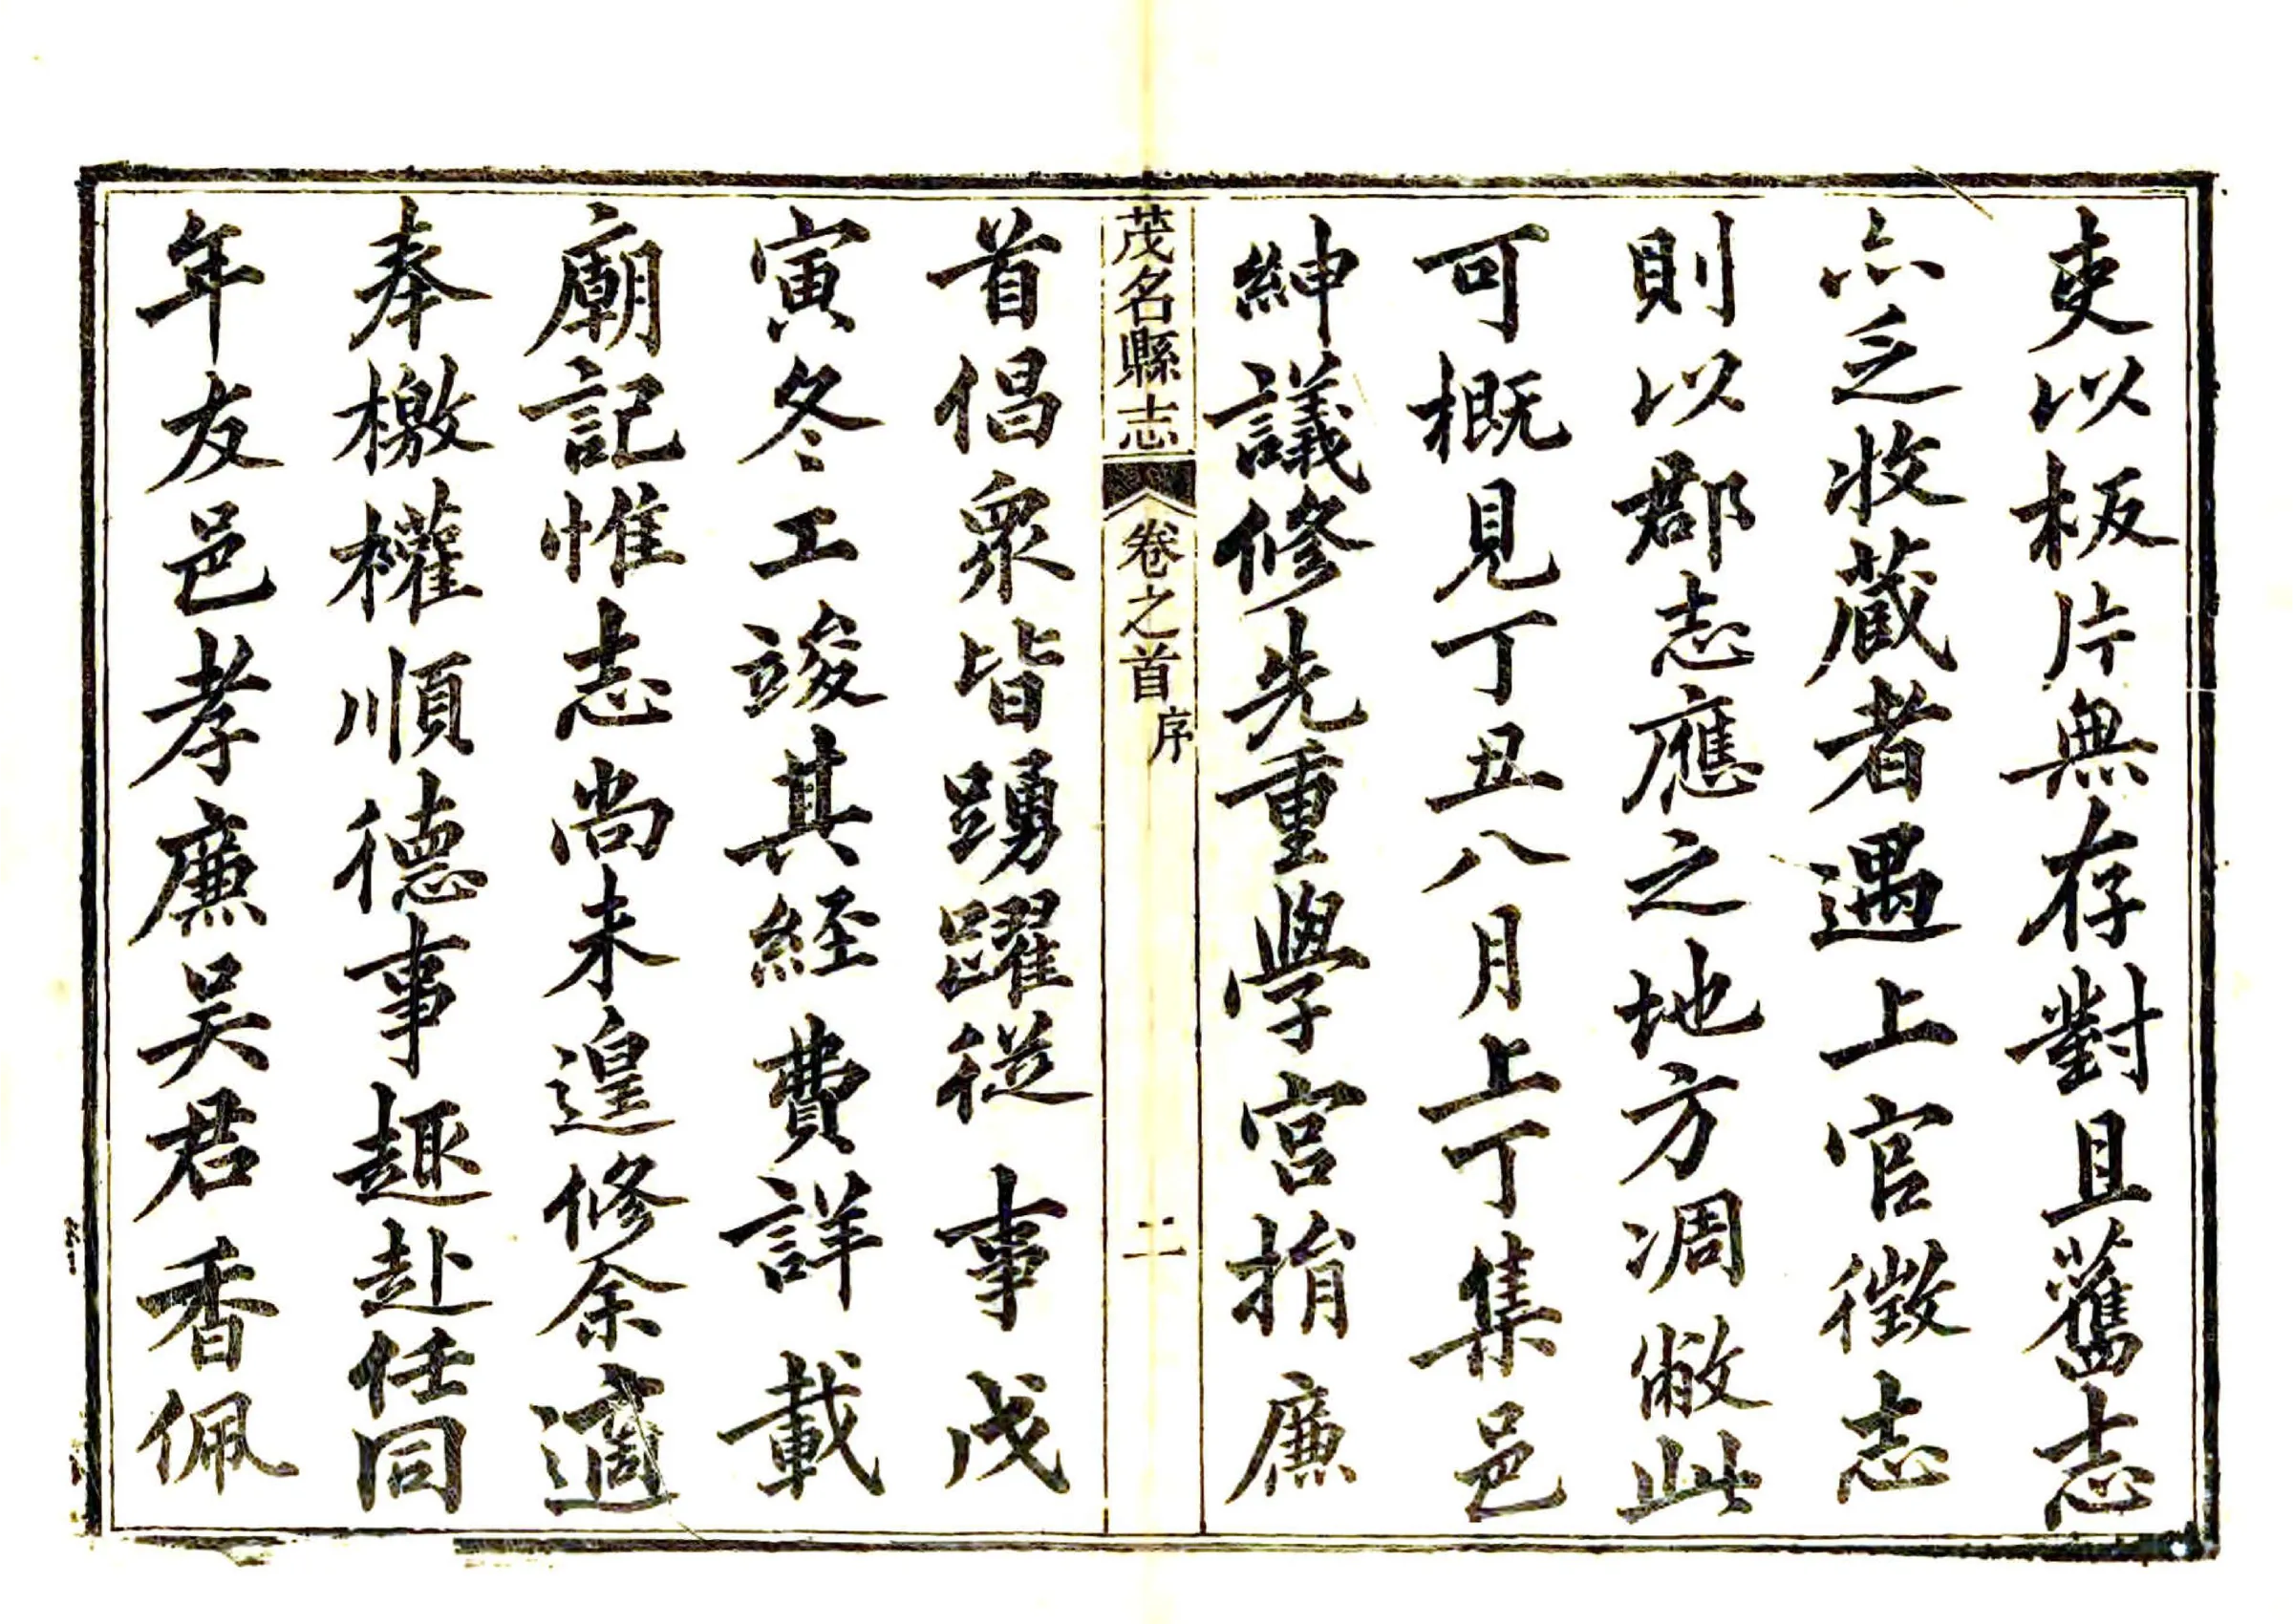 吏以板片無存對且舊志
亦乏收藏者遇上官徵志
則以郡志應之地方凋敝此
可概見丁丑八月上丁集邑
紳議修先重學宮捐廉
茂名縣志 卷之首 序 二
首倡衆皆踴躍從事戊
寅冬工竣其經費詳載
廟記惟志尚未遑修余適
奉檄權順德事趣赴任同
年友邑孝廉吳君香佩